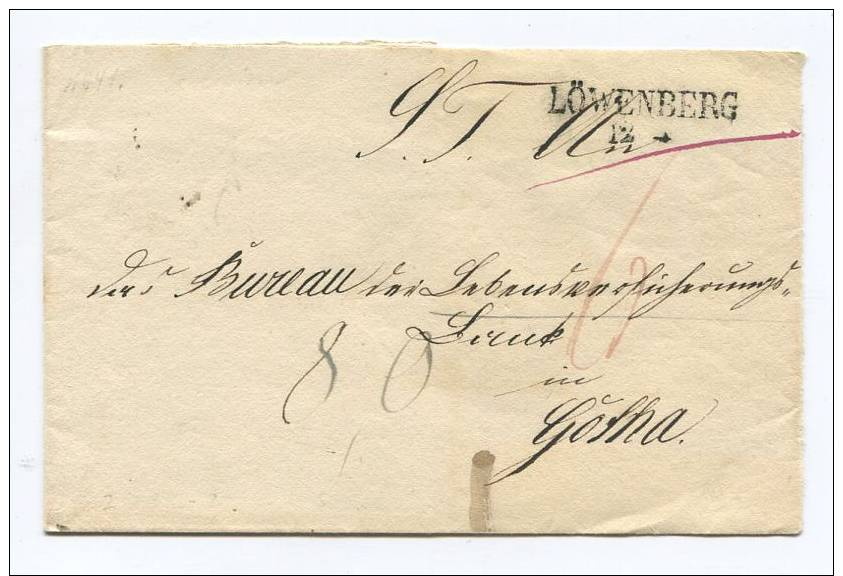 LÖWENBERG
12
S. T. An
das Bureau der Lebensversicherungs-
Bank
in
Gotha.
8
6